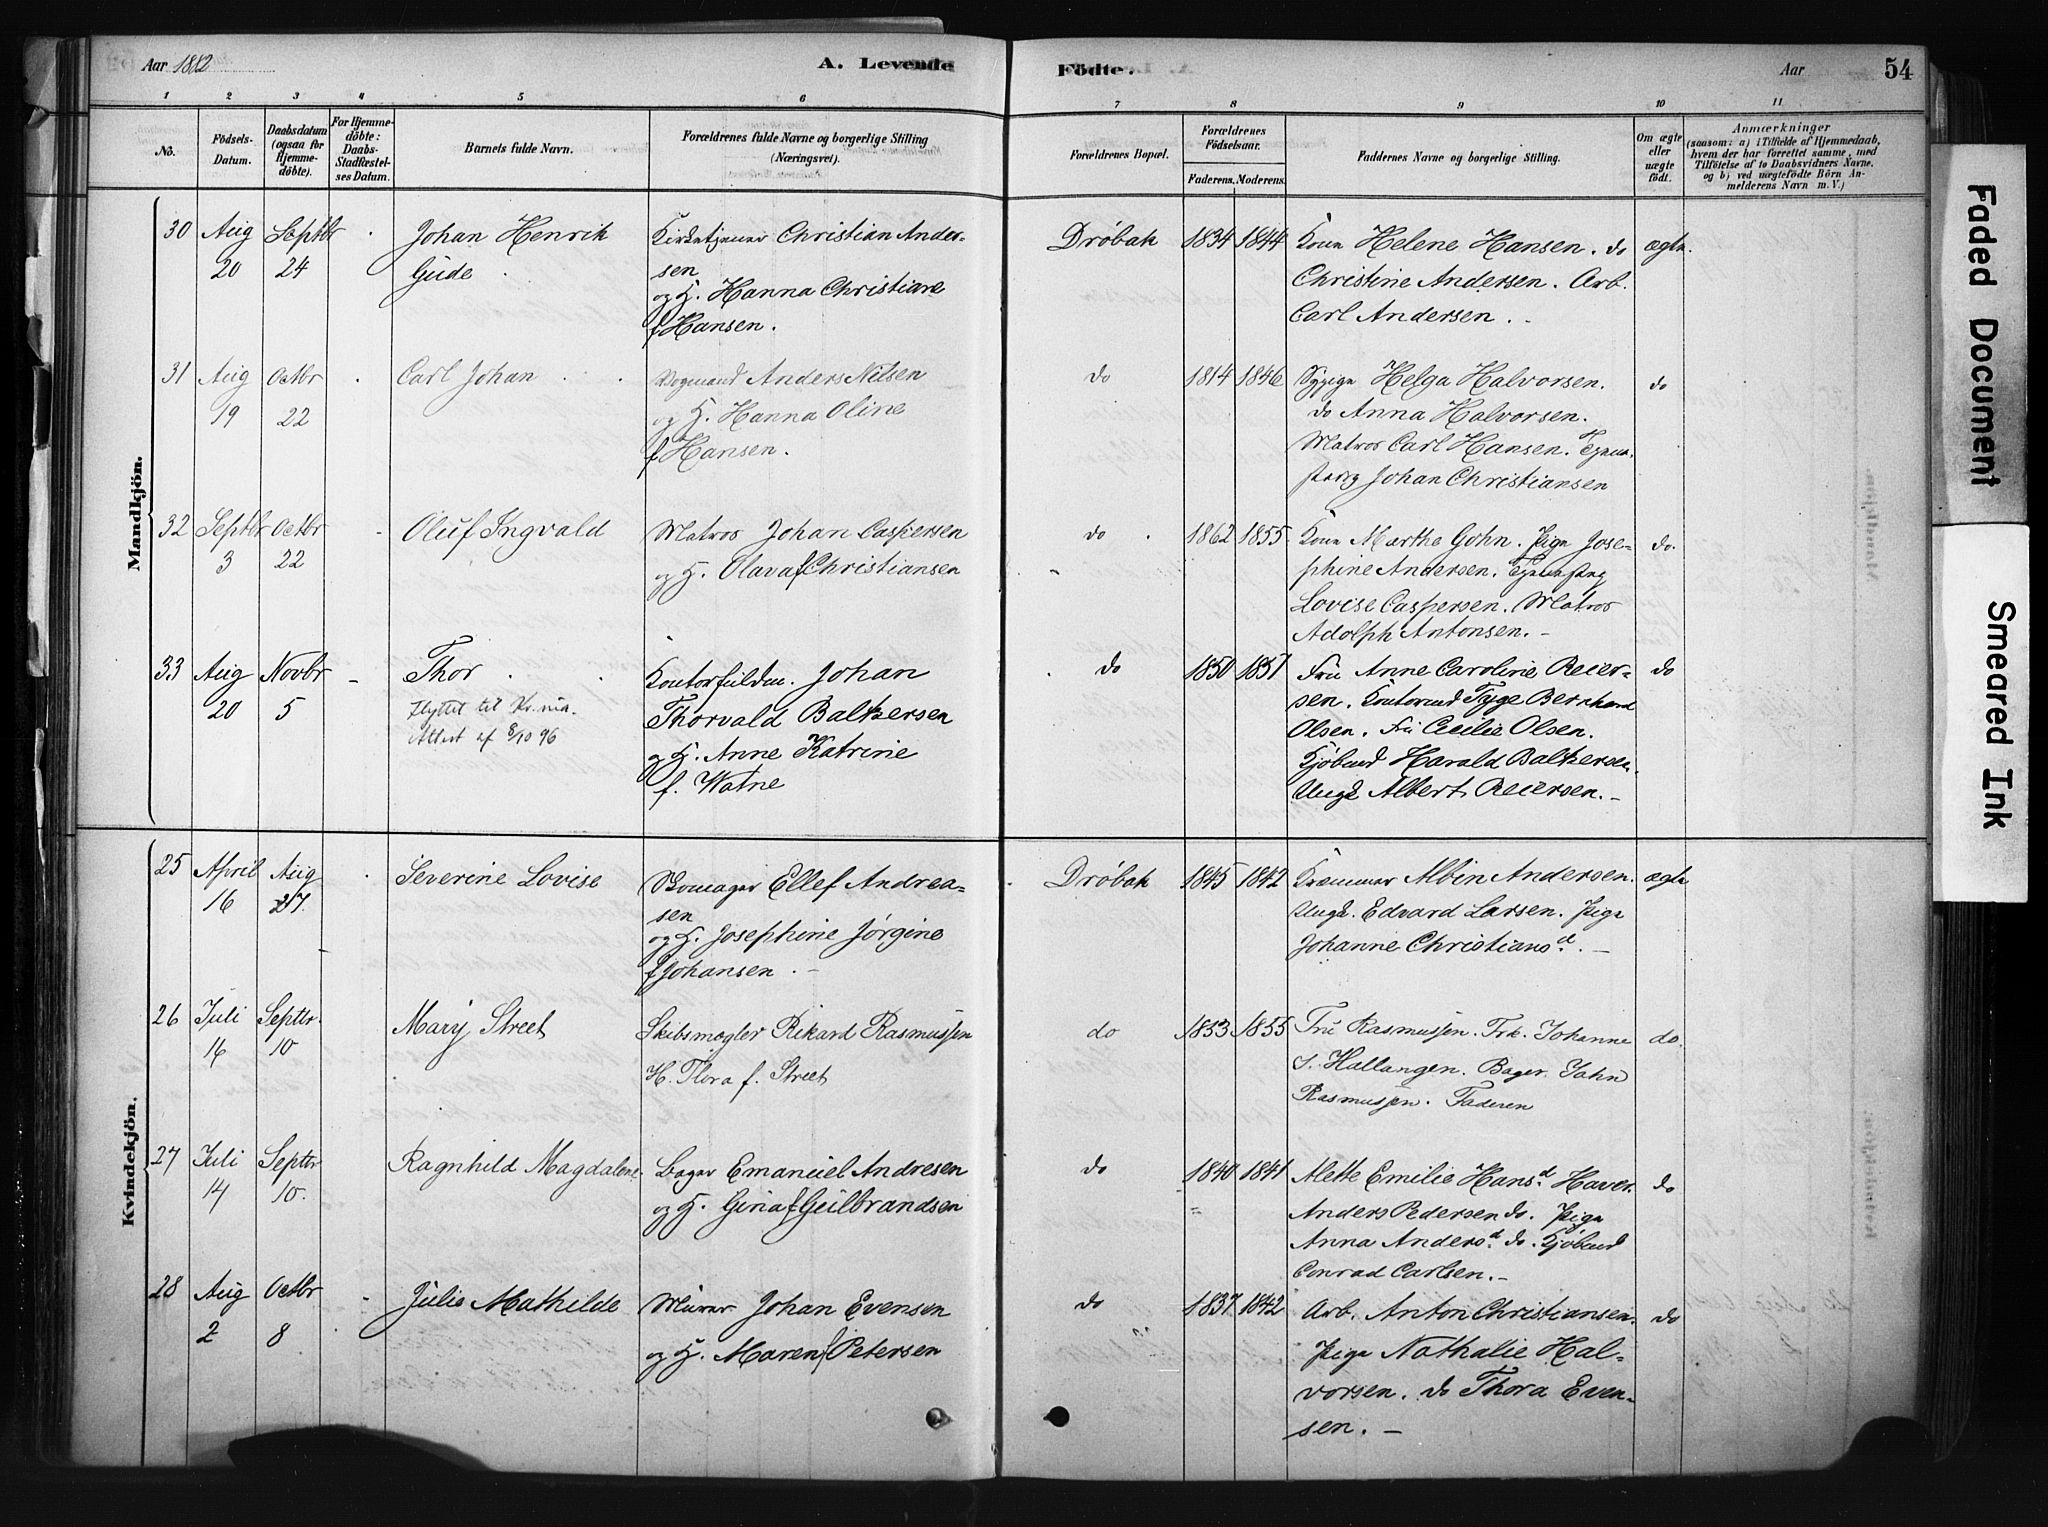 Aar 1882
A. Levende
Födte.
Aar
54
1 2 3 4 5 6 7 8 9 10 11
No.
Födsels-
Datum.
Daabsdatum
(ogsaa for
Hjemme-
döbte).
For Hjemme-
döbte:
Daabs-
Stadfæstel-
ses Datum.
Barnets fulde Navn.
Forældrenes fulde Navne og borgerlige Stilling
(Næringsvei).
Forældrenes Bopæl.
Forældrenes
Födselsaar.
Faderens. Moderens.
Faddernes Navne og borgerlige Stilling.
Om ægte
eller
uægte
födt.
Anmærkninger
(saasom: a) i Tilfælde af Hjemmedaab,
hvem der har forrettet samme, med
Tilföielse af to Daabsvidners Navne,
og b) ved uægtefödte Börn An-
melderens Navn m. V.)
Mandkjön.
30 Aug
20
Septbr
24
Johan Henrik
Gude
Kirketjener Christian Ander-
sen
og H. Hanna Christiane
f Hansen.
Dröbak 1834 1844
Kone Helene Hansen. do
Christine Andersen. Arb.
Carl Andersen.
ægte.
31 Aug
19
Octbr
22
Carl Johan
Vogmand Anders Nilsen
og H. Hanna Oline
f Hansen.
do 1814 1846
Sypige Helga Halvorsen.
do Anna Halvorsen.
Matros Carl Hansen. Tjene-
Johan Christiansen
do
32 Septbr
3
Octbr
22
Oluf Ingvald
Matros Johan Caspersen
og H. Olava f Christiansen
do 1862 1855
Kone Marthe Gohn. Pige Jose-
phine Andersen. Tjenepige
Lovise Caspersen. Matros
Adolph Antonsen. -
do.
33 Aug
20
Novbr
5
Thor
flyttet til Kr.nia.
Attest af 8/10 96
Kontorfuldm. Johan
Thorvald Baltzersen
og H. Anne Katrine
f. Watne
do 1850 1851
Fru Anne Caroline Reier-
sen. Kontormd Tyge Bernhard
Olsen. Fru Cecilie Olsen.
Kjøbmd Harald Baltzersen.
Ungk Albert Reiersen. -
do
Kvindekjön.
25 April
16
Aug
27.
Severine Lovise
Skomager Ellef Andrea-
sen
og H. Josephine Jørgine
f Johansen. -
Dröbak 1845 1842
Kræmmer Albin Andersen.
Ungk. Edvard Larsen. Pige
Johanne Christiansd. -
ægte
26 Juli
16
Septbr.
10
Mary Street
Skibsmægler Rikard Rasmussen
H. Flora f. Street
do 1853 1855
Fru Rasmussen. Frk. Johanne
S. Hallangen. Bager John
Rasmussen. Faderen
do.
27 Juli
14
Septbr
10.
Ragnhild Magdalene
Bager Emanuel Andresen
og H. Gina f Geilbrandsen
do 1840 1841
Alette Emilie Hansd. Haver.
Anders Pedersen do. Pige
Anna Andersd. do. Kjøbmd
Conrad Carlsen. -
do
28 Aug
2
Octbr
8
Julie Mathilde
Murer Johan Evensen
og H. Maren f Petersen
do 1837 1842
Arb. Anton Christiansen.
Pige Nathalie Hal-
vorsen. do Thora Even-
sen. -
do
Faded Document
Smeared Ink